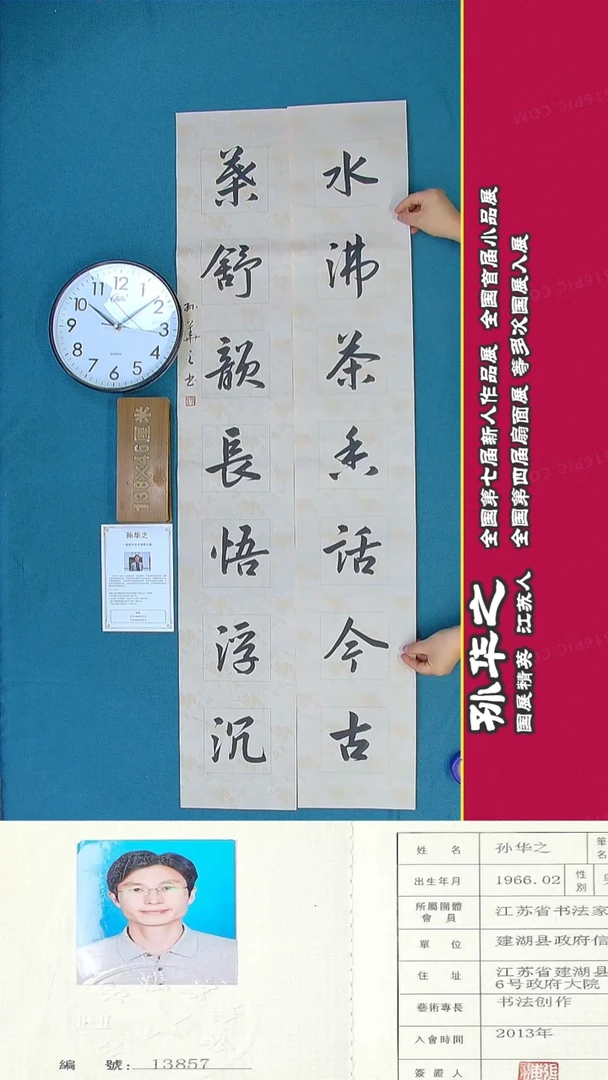 水沸茶香話今古
葉舒韻長悟浮沉
孙華之书
12
1
2
3
4
5
6
7
8
9
10
11
138×46厘米
孙华之
孙华之
国展精英 江苏人
全国第七届新人作品展 全国首届小品展
全国第四届扇面展 等多次国展入展
編 號: 13857
姓 名 孙华之 筆名
出生年月 1966.02 性別
所屬團體會員 江苏省书法家
單 位 建湖县政府信
住 址 江苏省建湖县
6号政府大院
藝術專長 书法创作
入會時間 2013年
簽證人